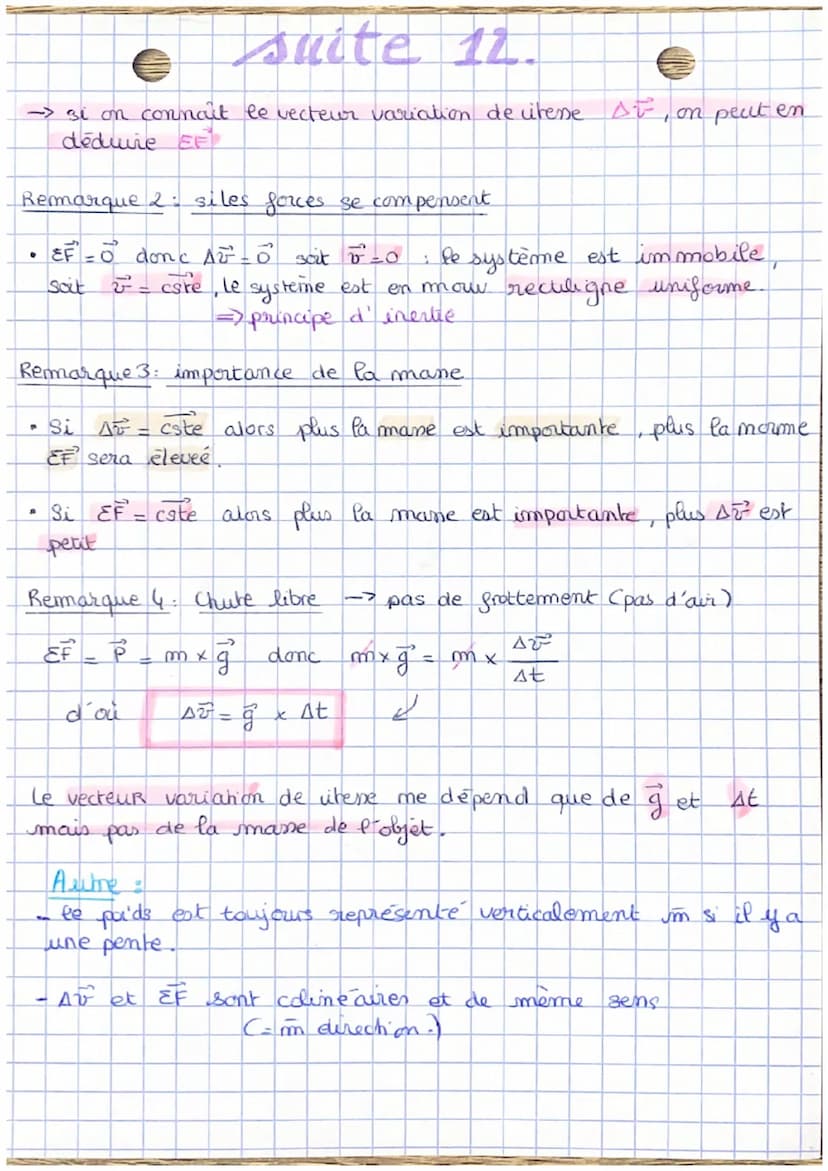 suite 12.
→ si on connaît le vecteur variation de vitesse Δv⃗, on peut en
déduire ΣF⃗
Remarque 2 : si les forces se compensent
• ΣF⃗ = 0⃗ donc Δv⃗ = 0⃗ soit v⃗ = 0 : le système est immobile,
soit v⃗ = cste⃗, le système est en mouv rectiligne uniforme.
⇒ principe d'inertie
Remarque 3: importance de la masse
• Si Δv⃗ = cste⃗ alors plus la masse est importante, plus la norme
ΣF⃗ sera éleveé.
• Si ΣF⃗ = cste⃗ alors plus la masse est importante, plus Δv⃗ est
petit
Remarque 4 : Chute libre → pas de frottement (pas d'air)
ΣF⃗ = P⃗ = m × g⃗ donc m × g⃗ = m × Δv⃗ / Δt
d'où Δv⃗ = g⃗ × Δt ↙
Le vecteur variation de vitesse ne dépend que de g⃗ et Δt
mais pas de la masse de l'objet.
Autre :
- le poids est toujours représenté verticalement m̄ si il y a
une pente.
- Δv⃗ et ΣF⃗ sont colinéaires et de même sens
(= m̄ direction.)